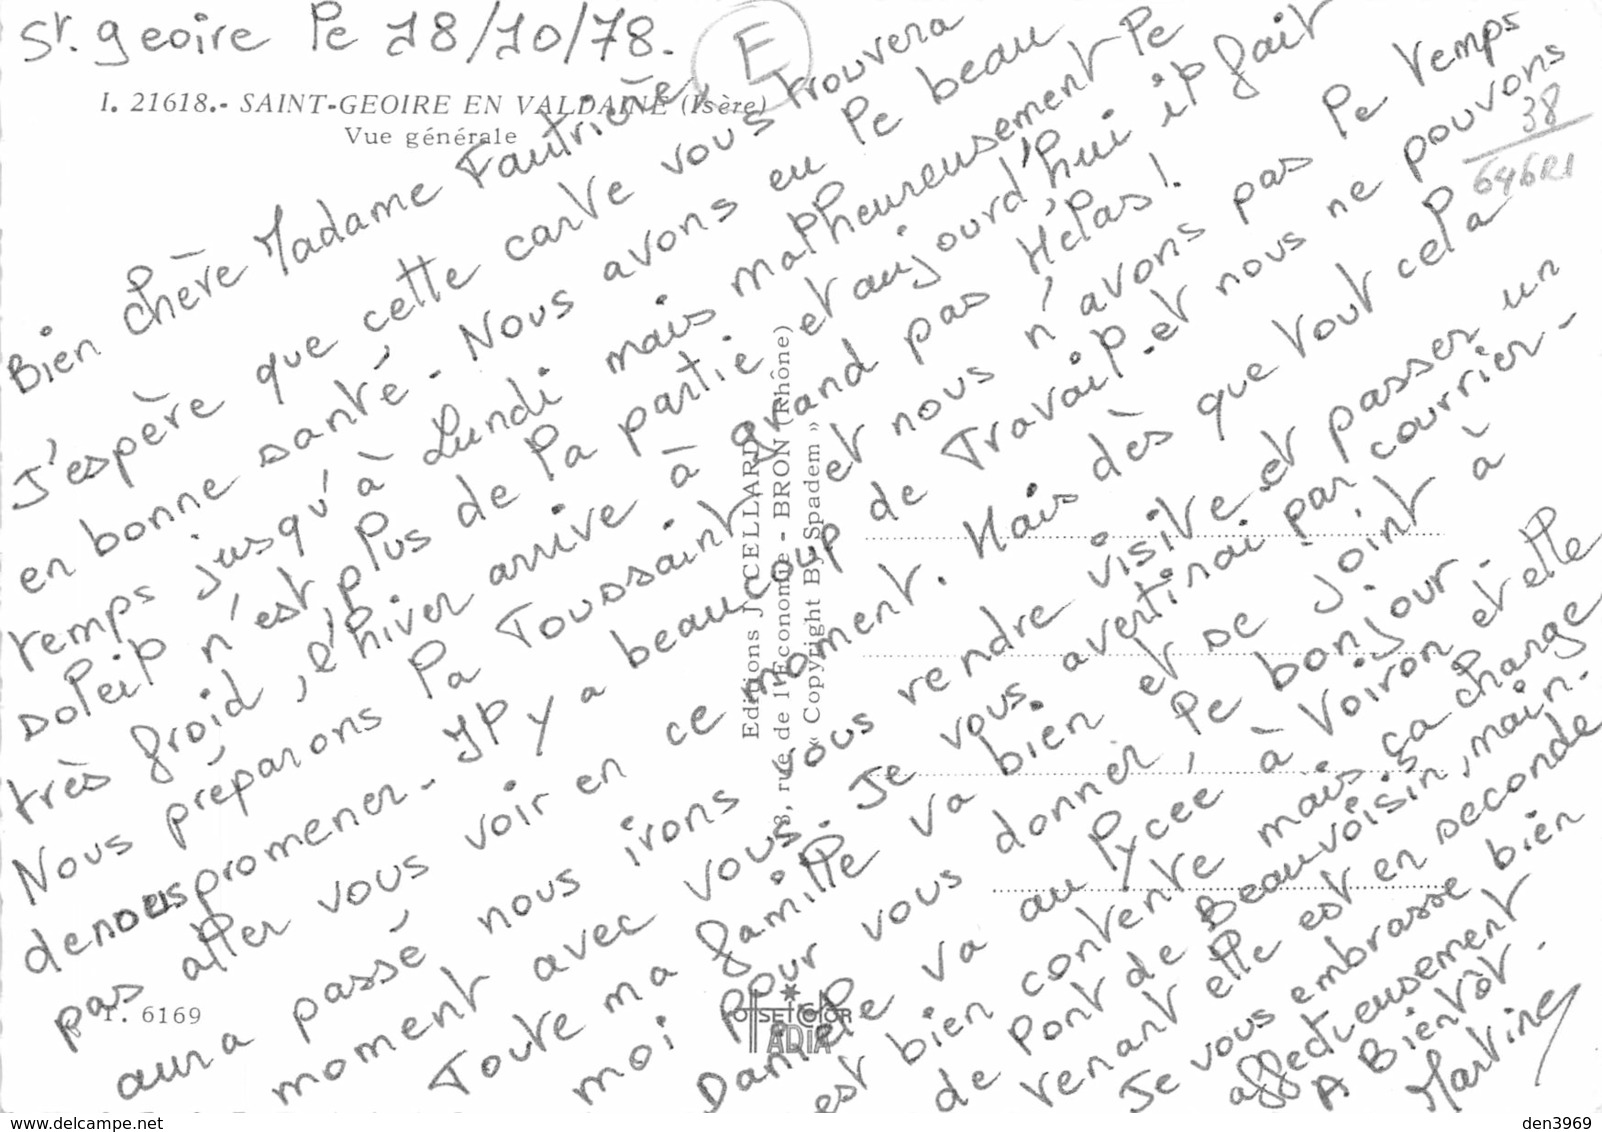 St. geoire le 18/10/78.
E
I. 21618.- SAINT-GEOIRE EN VALDAINE (Isère)
Vue générale
38
646R1
Bien chère Madame Fautrière,
J'espère que cette carte vous trouvera
en bonne santé. Nous avons eu le beau
temps jusqu'à Lundi mais malheureusement le
soleil n'est plus de la partie et aujourd'hui il fait
très froid, l'hiver arrive à grand pas Hélas!.
Nous préparons la Toussaint et nous n'avons pas le temps
de nous promener. Il y a beaucoup de Travail. et nous ne pouvons
pas aller vous voir en ce moment. Mais dès que tout cela
aura passé nous irons vous rendre visite et passer un
moment avec vous. Je vous avertirai par courrier-
Toute ma famille va bien et se joint à
moi pour vous donner le bonjour.
Danièle va au lycée à Voiron et elle
est bien contente mais ça change
de Pont de Beauvoisin, main-
tenant elle est en seconde
Je vous embrasse bien
affectueusement
A Bientôt.
Martine
Editions J. CELLARD
rue de l'Economie - BRON (Rhône)
« Copyright By Spadem »
T. 6169
OFFSETCOLOR
ADIA
www.delcampe.net
den3969